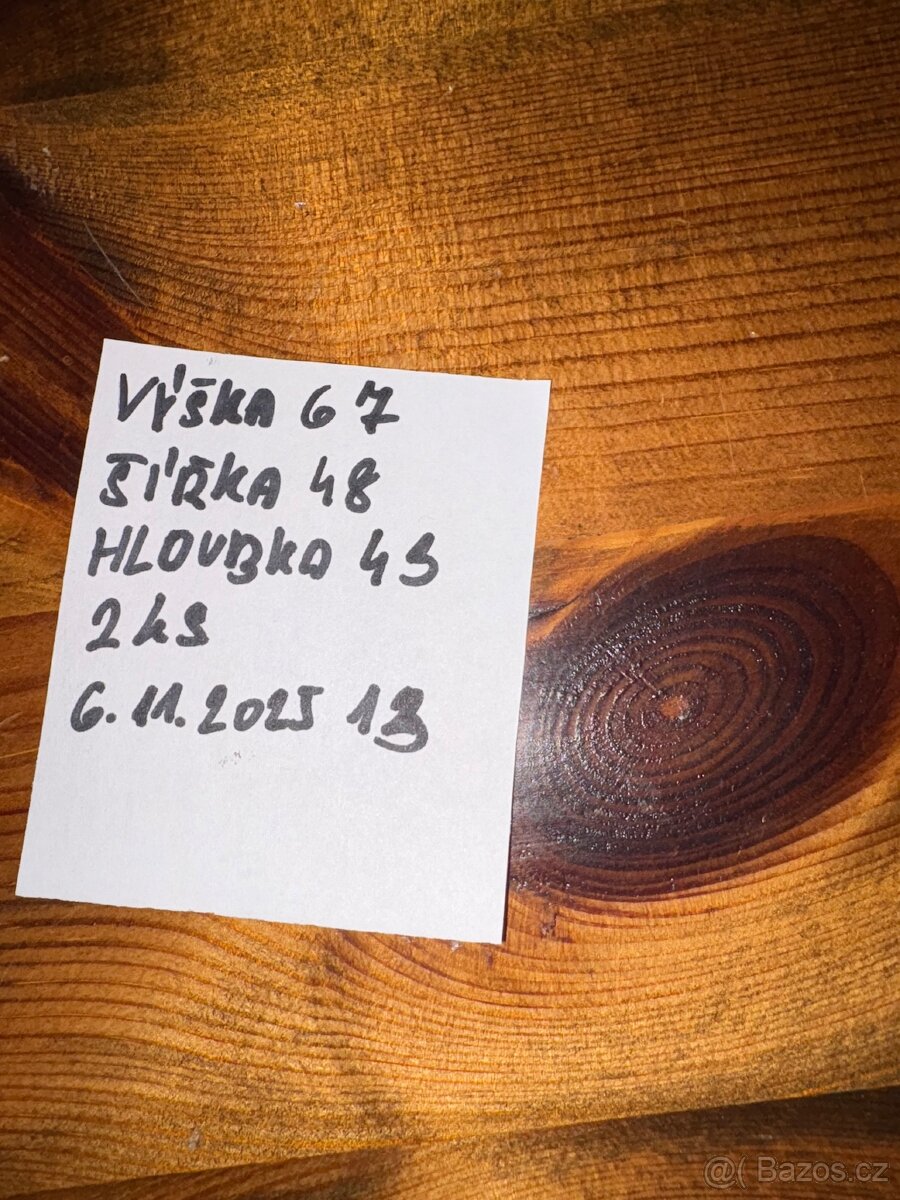 VÝŠKA 67
ŠÍŘKA 48
HLOUBKA 43
2 kS
6.11.2025 13
@( Bazos.cz